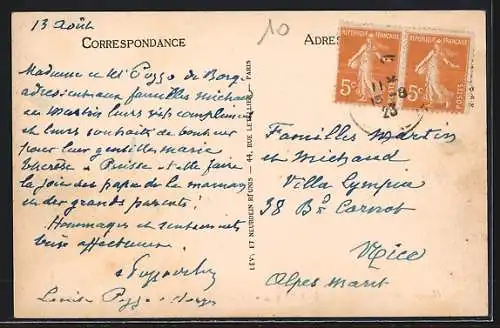 13 Août
10
CORRESPONDANCE
ADRES
RÉPUBLIQUE FRANÇAISE
5c
POSTES
RÉPUBLIQUE FRANÇAISE
5c
POSTES
23
8
Madame et Mr Pozzo di Borgo
adressent aux familles Michaud
et Martin leurs
et leurs souhaits de bonheur
pour leur gentille
Thérèse Puisse-t-elle faire
la joie des papa de la maman
et des grands parents!
Hommages et
bises affectueuses
Louise Pozzo di Borgo
LÉVY ET NEURDEIN RÉUNIS — 44, RUE LETELLIER — PARIS
Familles Martin
et Michaud
Villa Lympia
38 Bd Carnot
Nice
Alpes Marit